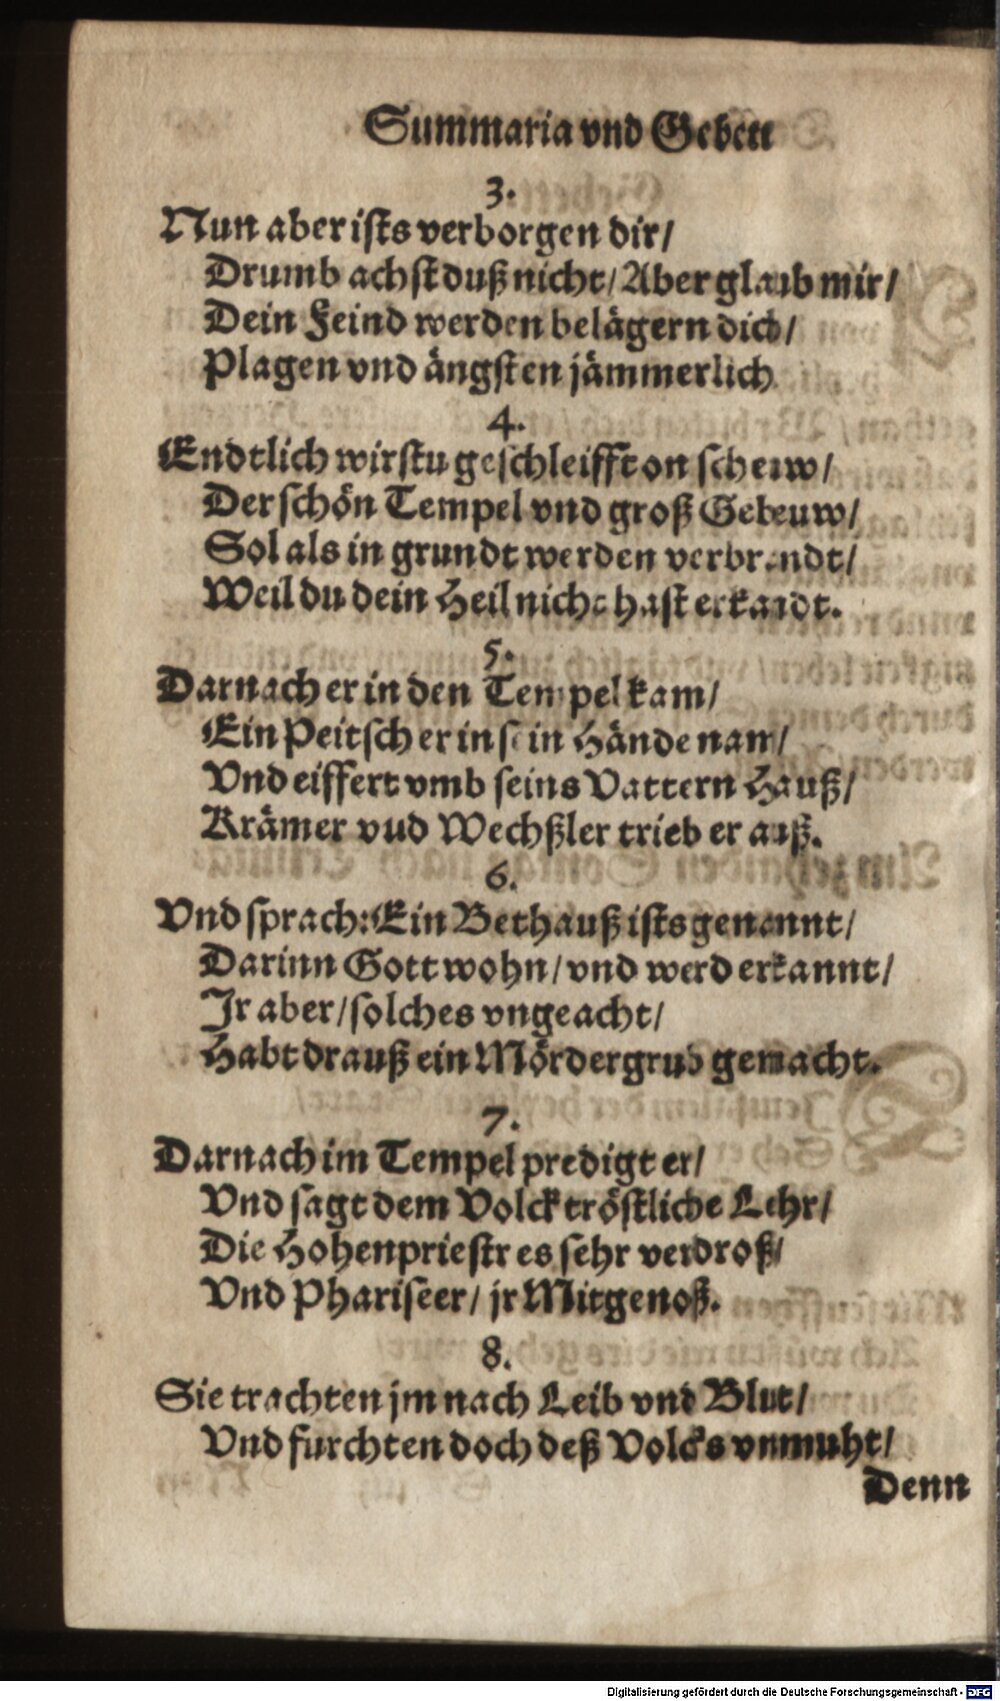 Summaria vnd Gebett
3.
Nun aber ists verborgen dir/
Drumb achst duß nicht/ Aber glaub mir/
Dein Feind werden belägern dich/
Plagen vnd ängsten jämmerlich
4.
Endtlich wirstu geschleifft on scheuw/
Der schön Tempel vnd groß Gebeuw/
Sol als in grundt werden verbrandt/
Weil du dein Heil nicht hast erkandt.
5.
Darnach er in den Tempel kam/
Ein Peitsch er in sein Hände nam/
Vnd eiffert vmb seins Vattern Hauß/
Krämer vud Wechßler trieb er auß.
6.
Vnd sprach: Ein Bethauß ists genannt/
Darinn Gott wohn/ vnd werd erkannt/
Jr aber/ solches vngeacht/
Habt drauß ein Mördergrub gemacht.
7.
Darnach im Tempel predigt er/
Vnd sagt dem Volck tröstliche Lehr/
Die Hohenpriestr es sehr verdroß/
Vnd Phariseer/ jr Mitgenoß.
8.
Sie trachten jm nach Leib vnd Blut/
Vnd furchten doch deß Volcks vnmuht/
Denn
Digitalisierung gefördert durch die Deutsche Forschungsgemeinschaft - DFG